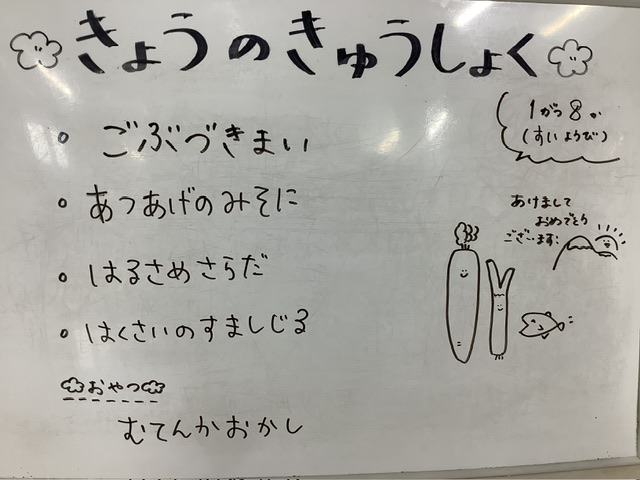 きょうのきゅうしょく
1がつ8か
(すいようび)
。ごぶづきまい
。あつあげのみそに
。はるさめさらだ
。はくさいのすましじる
あけまして
おめでとう
ございます:
おやつ
むてんかおかし